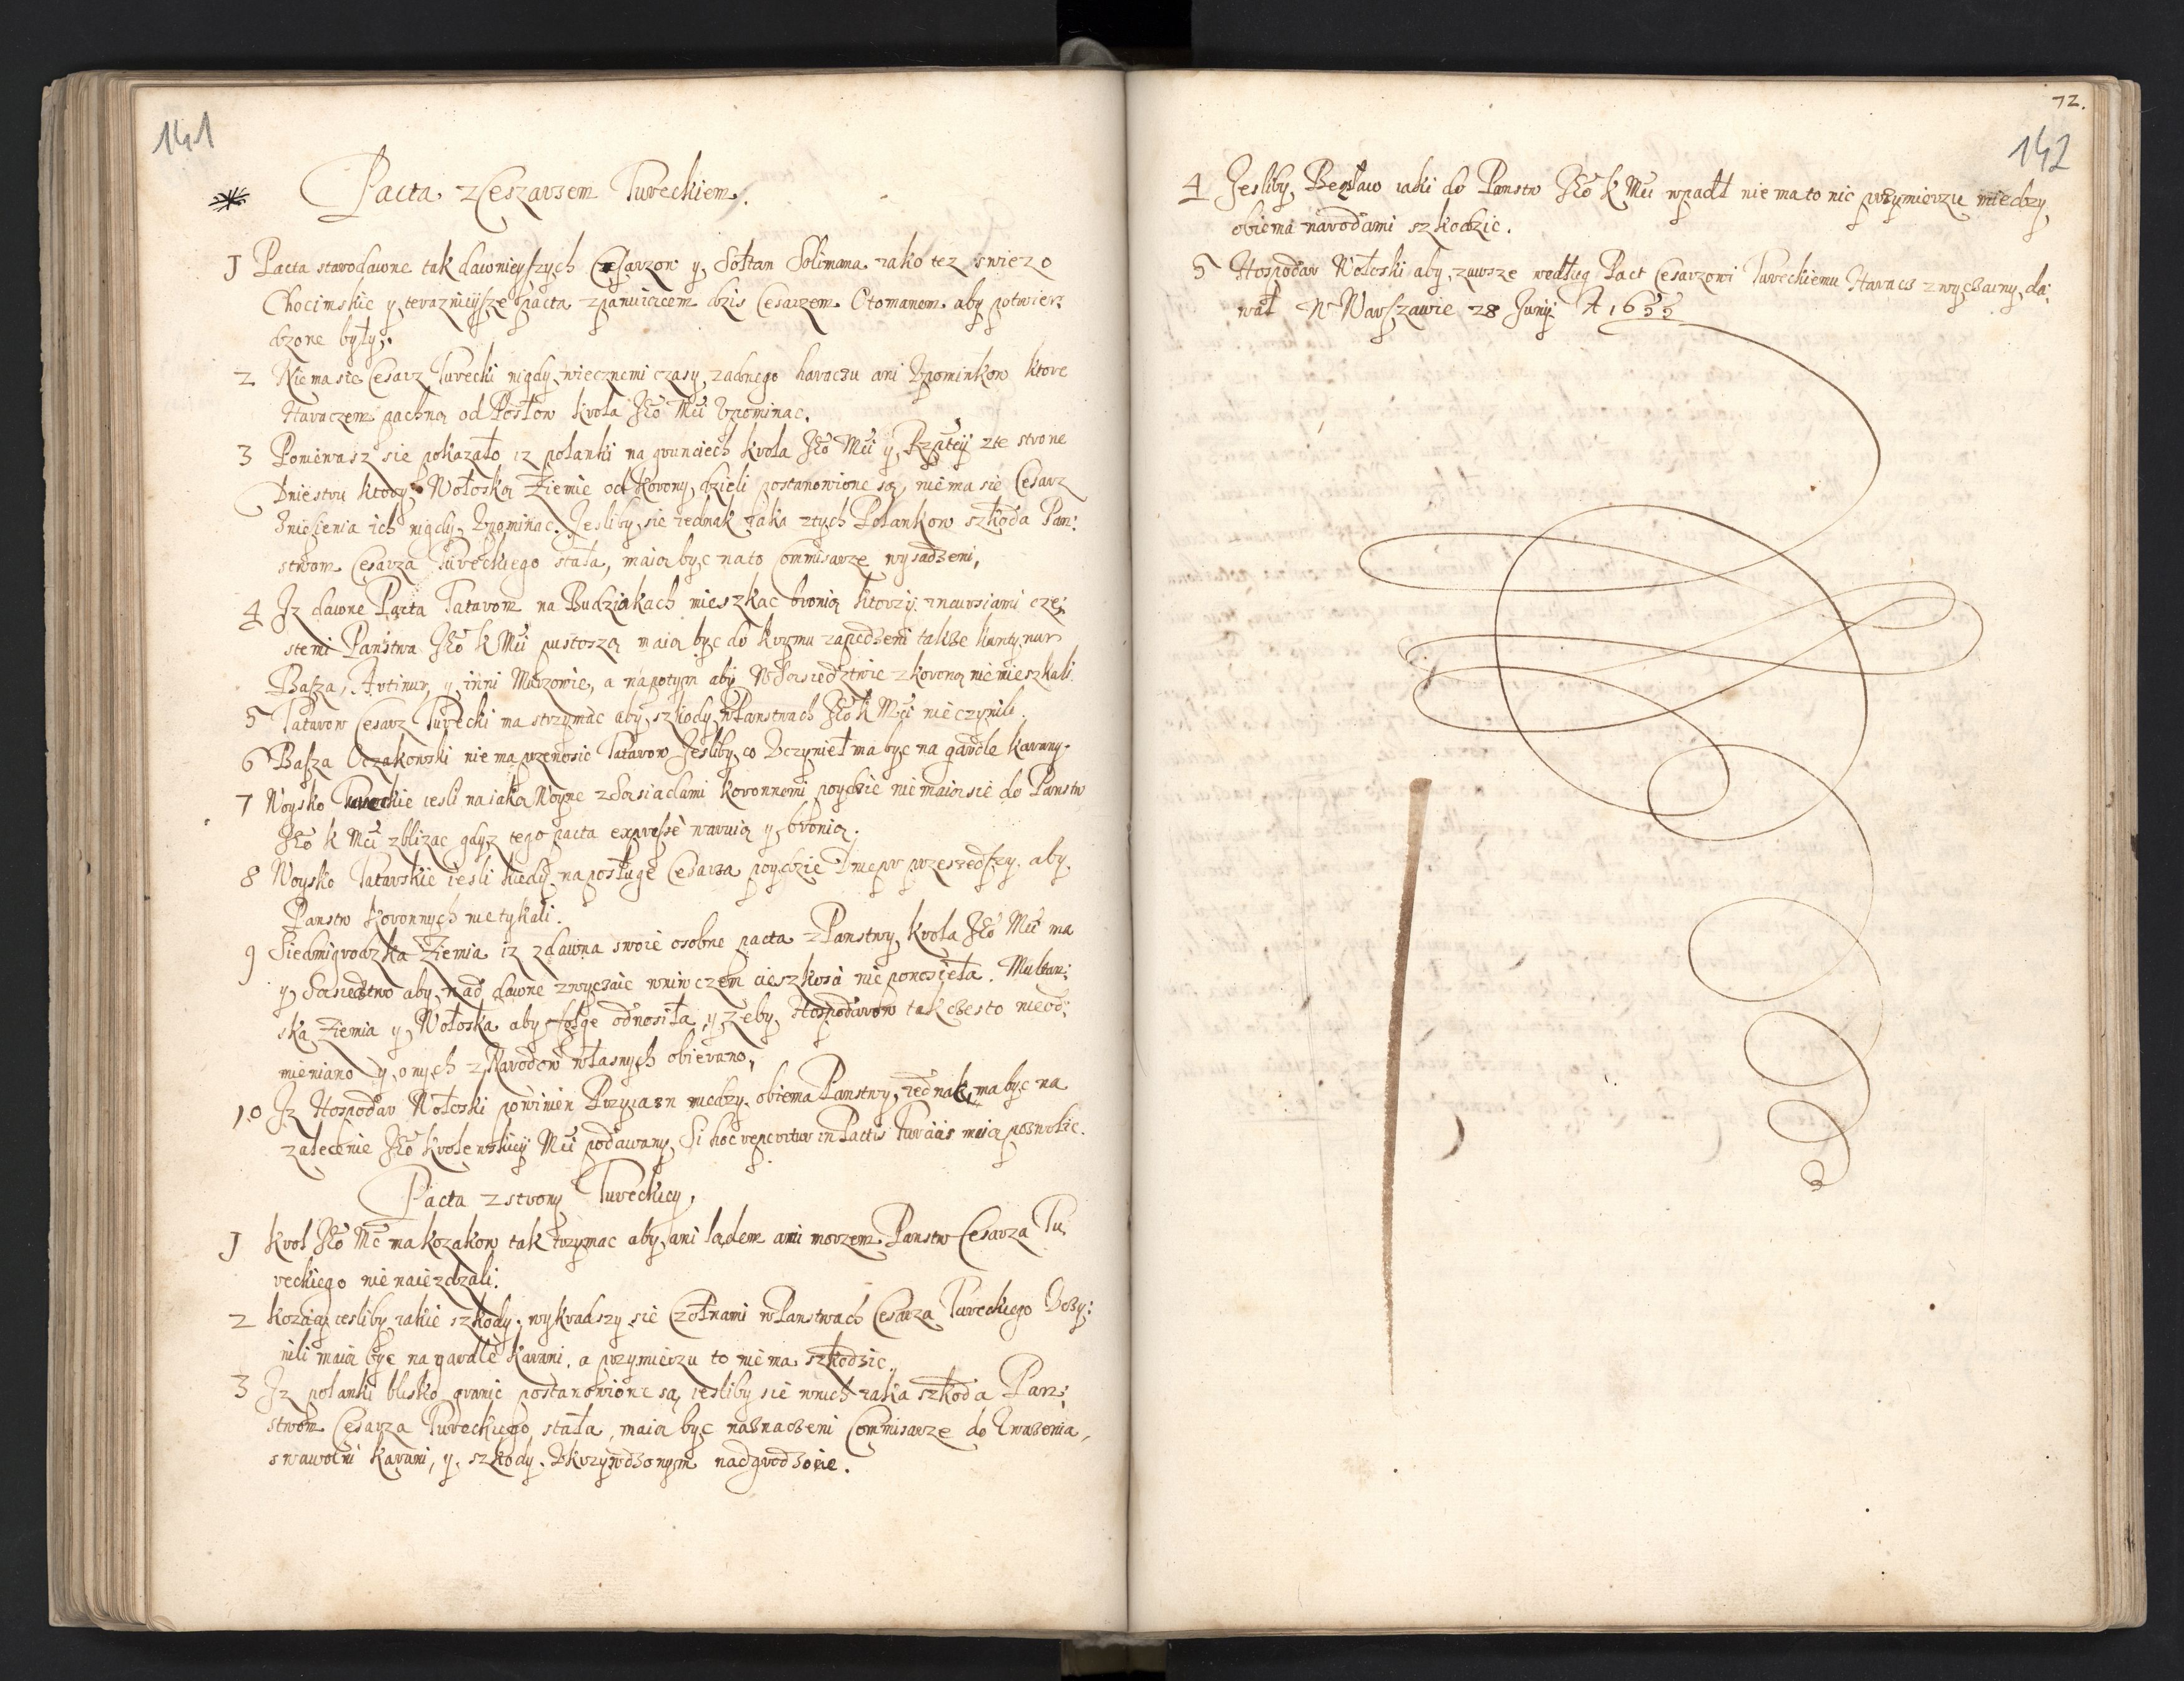 141
Pacta z Ceszarzem Tureckiem.
1 Pacta starodawne tak dawnieyszych Cesarzow y Sołtan Solimana iako tez swiezo
Chocimskie y terazniejsze pacta z panuiącem dzis Cesarzem Otomanem aby potwier:
dzone były.
2 Niema sie Cesarz Turecki nigdy wiecznemi czasy zadnego haraczu ani Upominkow ktore
Haraczem pachną od Posłow krola Jeo Mci Upominac.
3 Poniewasz sie pokazało iz polanki na grunciech krola Jeo Mci y Rzptey z te strone
Dniestru ktory Wołoską Ziemie od korony dzieli postanowione są, niema sie Cesarz
Znieszenia ich nigdy Upominac. Jesliby sie iednak iaka z tych Polankow szkoda Pan:
stwom Cesarza Tureckiego stała, maią byc na to Commisarze wysadzeni,
4 Iz dawne Pacta Tatarom na Budziakach mieszkac bronią ktorzy incursiami czę:
stemi Panstwa Jeo K Mci pustoszą maią byc do krymu zapedzeni takze kantymur
Basza, Artimur, y inni Murzowie, a napotym aby W Sasiedztwie z koroną niemieszkali.
5 Tatarow Cesarz Turecki ma strzymac aby szkody w Panstwach Jeo K Mci nieczynili.
6 Basza Oczakowski niema przenosic Tatarow Jesliby co Uczynieł ma byc na gardle karany.
7 Woysko Tureckie iesli na iaką Woyne z Sąsiadami koronnemi poydzie niemaią sie do Panstw
Jeo K Mci zblizac gdyz tego pacta expresse waruią y bronią.
8 Woysko Tatarskie iesli kiedy na posługe Cesarza poydzie Dniepr przeszedszy aby
Panstw koronnych nie tykali.
9 Siedmigrodzka Ziemia iz zdawna swoie osobne pacta z Panstwy krola Jeo Mci ma
y Sasiedztwo aby nad dawne zwyczaie wniwczem cieszkosci nie ponosieła. Multan:
ska Ziemia y Wołoska aby folge odnosiła, y zeby Hospodarow tak czesto nieod:
mieniano y onych z Narodow własnych obierano,
10 Iz Hospodar Wołoski powinien Przyiazn miedzy obiema Panstwy, iednak ma byc na
zalecenie Jeo krolewskiey Mci podawany, Si hoc reperitur in Pactis Turciis maią pozwolic.
Pacta z strony Tureckiey,
1 krol Jeo Mc ma kozakow tak trzymac aby ani lądem ani morzem Panstw Cesarza Tu
reckiego nie naiezdzali.
2 kozacy iesliby iakie szkody wykradszy sie Czołnami w Panstwach Cesarza Tureckiego Uczy:
nili maią byc na gardle karani, a przymierzu to niema szkodzic.
3 Iz polanki blisko granic postanowione są, iesliby sie wnich iaka szkoda Pan:
stwom Cesarza Tureckiego stała, maią byc naznaczeni Commisarze do Zniesienia,
swawolni karani, y szkody Ukrzywdzonym nadgrodzone.
72.
142
4 Jesliby Bogdaw iaki do Panstw Jeo K Mci wpadł niema to nic przymierzu miedzy
obiema narodami szkodzic.
5 Hospodar Wołoski aby zawsze według Pact Cesarzowi Tureckiemu Haracz zwyczainy da:
wał W Warszawie 28 Junij A 1633